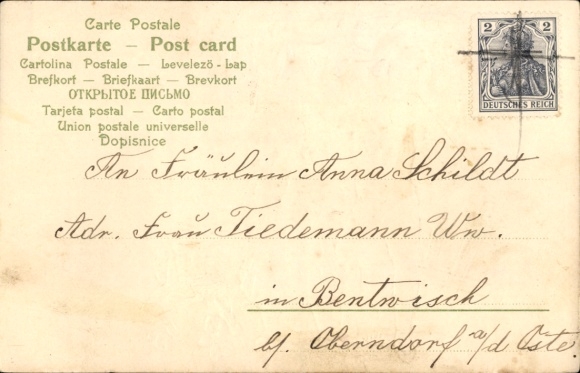 Carte Postale
Postkarte – Post card
Cartolina Postale — Levelezö - Lap
Brefkort — Briefkaart — Brevkort
ОТКРЫТОЕ ПИСЬМО
Tarjeta postal — Carto postal
Union postale universelle
Dopisnice
2 2
DEUTSCHES REICH
An Fräulein Anna Schildt
Adr. Frau Tiedemann Ww.
in Bentwisch
bf. Oberndorf a/d Oste.